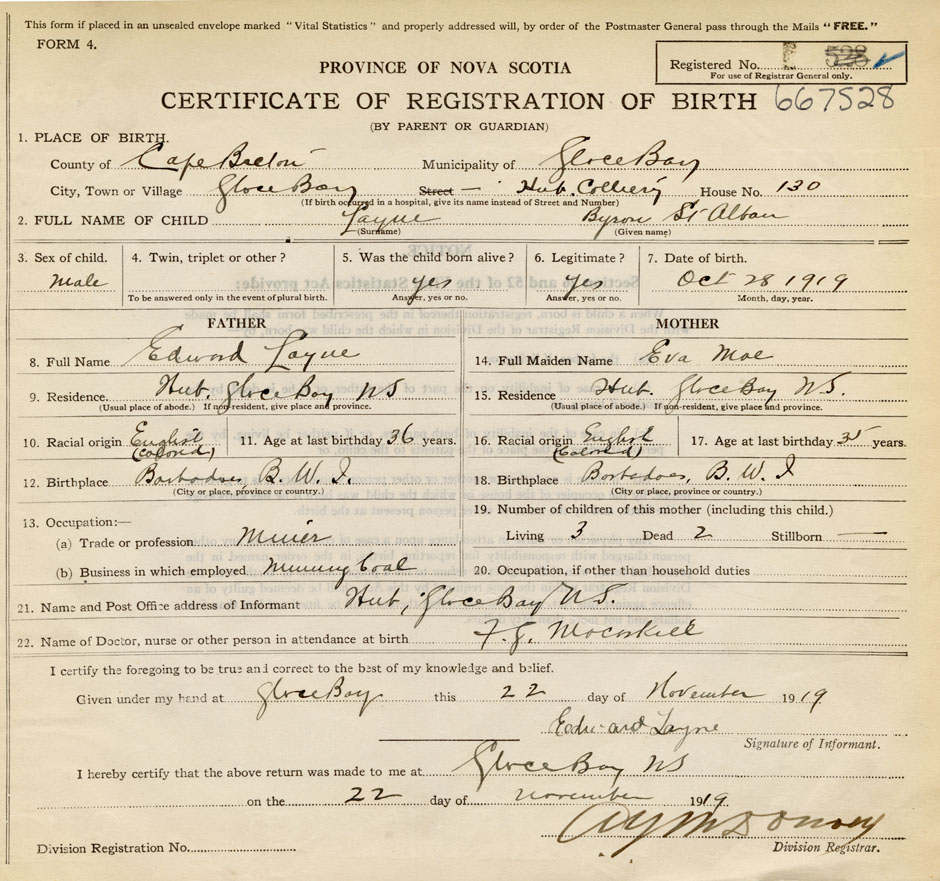 This form if placed in an unsealed envelope marked "Vital Statistics" and properly addressed will, by order of the Postmaster General pass through the Mails "FREE."
FORM 4.
Registered No. 528
For use of Registrar General only.
PROVINCE OF NOVA SCOTIA
CERTIFICATE OF REGISTRATION OF BIRTH 667528
(BY PARENT OR GUARDIAN)
1. PLACE OF BIRTH.
County of Cape Breton Municipality of Glace Bay
City, Town or Village Glace Bay Street — Hub. Colliery House No. 130
(If birth occurred in a hospital, give its name instead of Street and Number)
2. FULL NAME OF CHILD Layne Byron St Alban
(Surname) (Given name)
3. Sex of child. 4. Twin, triplet or other? 5. Was the child born alive? 6. Legitimate? 7. Date of birth?
Male yes yes Oct 28 1919
To be answered only in the event of plural birth. Answer, yes or no. Answer, yes or no. Month, day, year.
FATHER MOTHER
8. Full Name Edward Layne 14. Full Maiden Name Eva Moe
9. Residence. Hub. Glace Bay NS 15. Residence Hub. Glace Bay N.S.
(Usual place of abode.) If non-resident, give place and province. (Usual place of abode.) If non-resident, give place and province.
10. Racial origin English 11. Age at last birthday 36 years. 16. Racial origin English 17. Age at last birthday 35 years.
(Colored) (Colored)
12. Birthplace Barbadoes, B.W.I. 18. Birthplace Barbadoes, B.W.I
(City or place, province or country.) (City or place, province or country.)
13. Occupation:— 19. Number of children of this mother (including this child.)
(a) Trade or profession Miner Living 3 Dead 2 Stillborn —
(b) Business in which employed Mining Coal 20. Occupation, if other than household duties
21. Name and Post Office address of Informant Hub, Glace Bay N.S.
22. Name of Doctor, nurse or other person in attendance at birth
I certify the foregoing to be true and correct to the best of my knowledge and belief.
Given under my hand at Glace Bay this 22 day of November 1919
Edward Layne
Signature of Informant.
I hereby certify that the above return was made to me at Glace Bay NS
on the 22 day of November 1919
Division Registration No. Division Registrar.